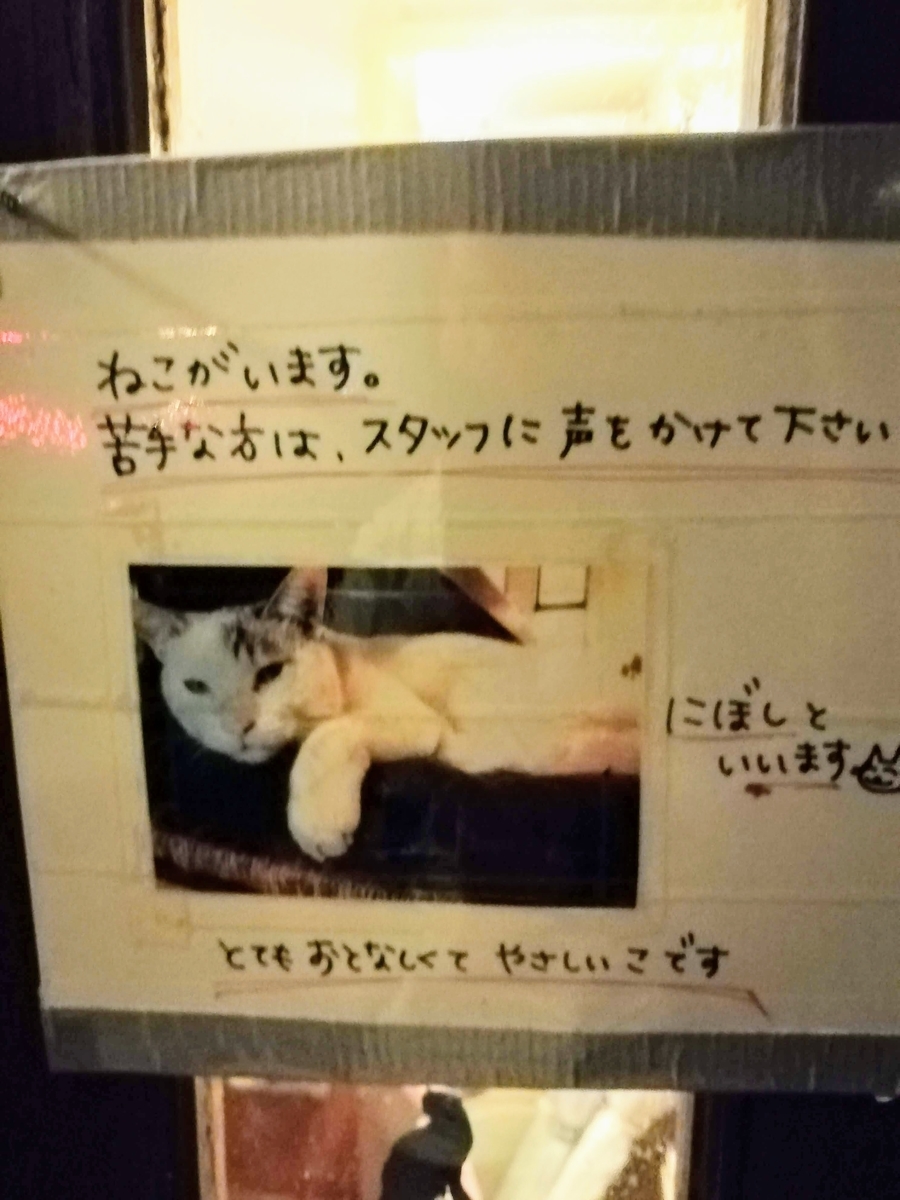 ねこがいます。
苦手な方は、スタッフに声をかけて下さい
にぼしと
いいます
とてもおとなしくて やさしいこです